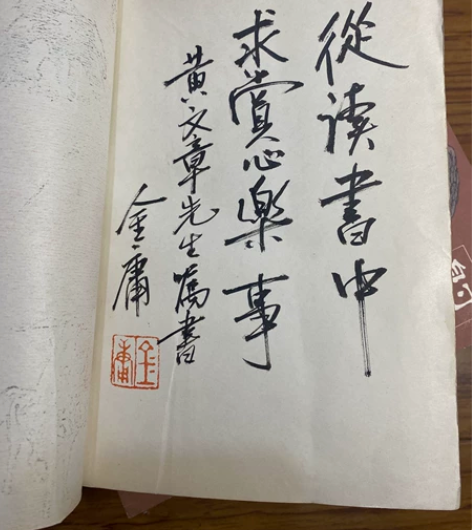 從读書中
求賞心樂事
黄文章先生嘱書
金庸
金庸